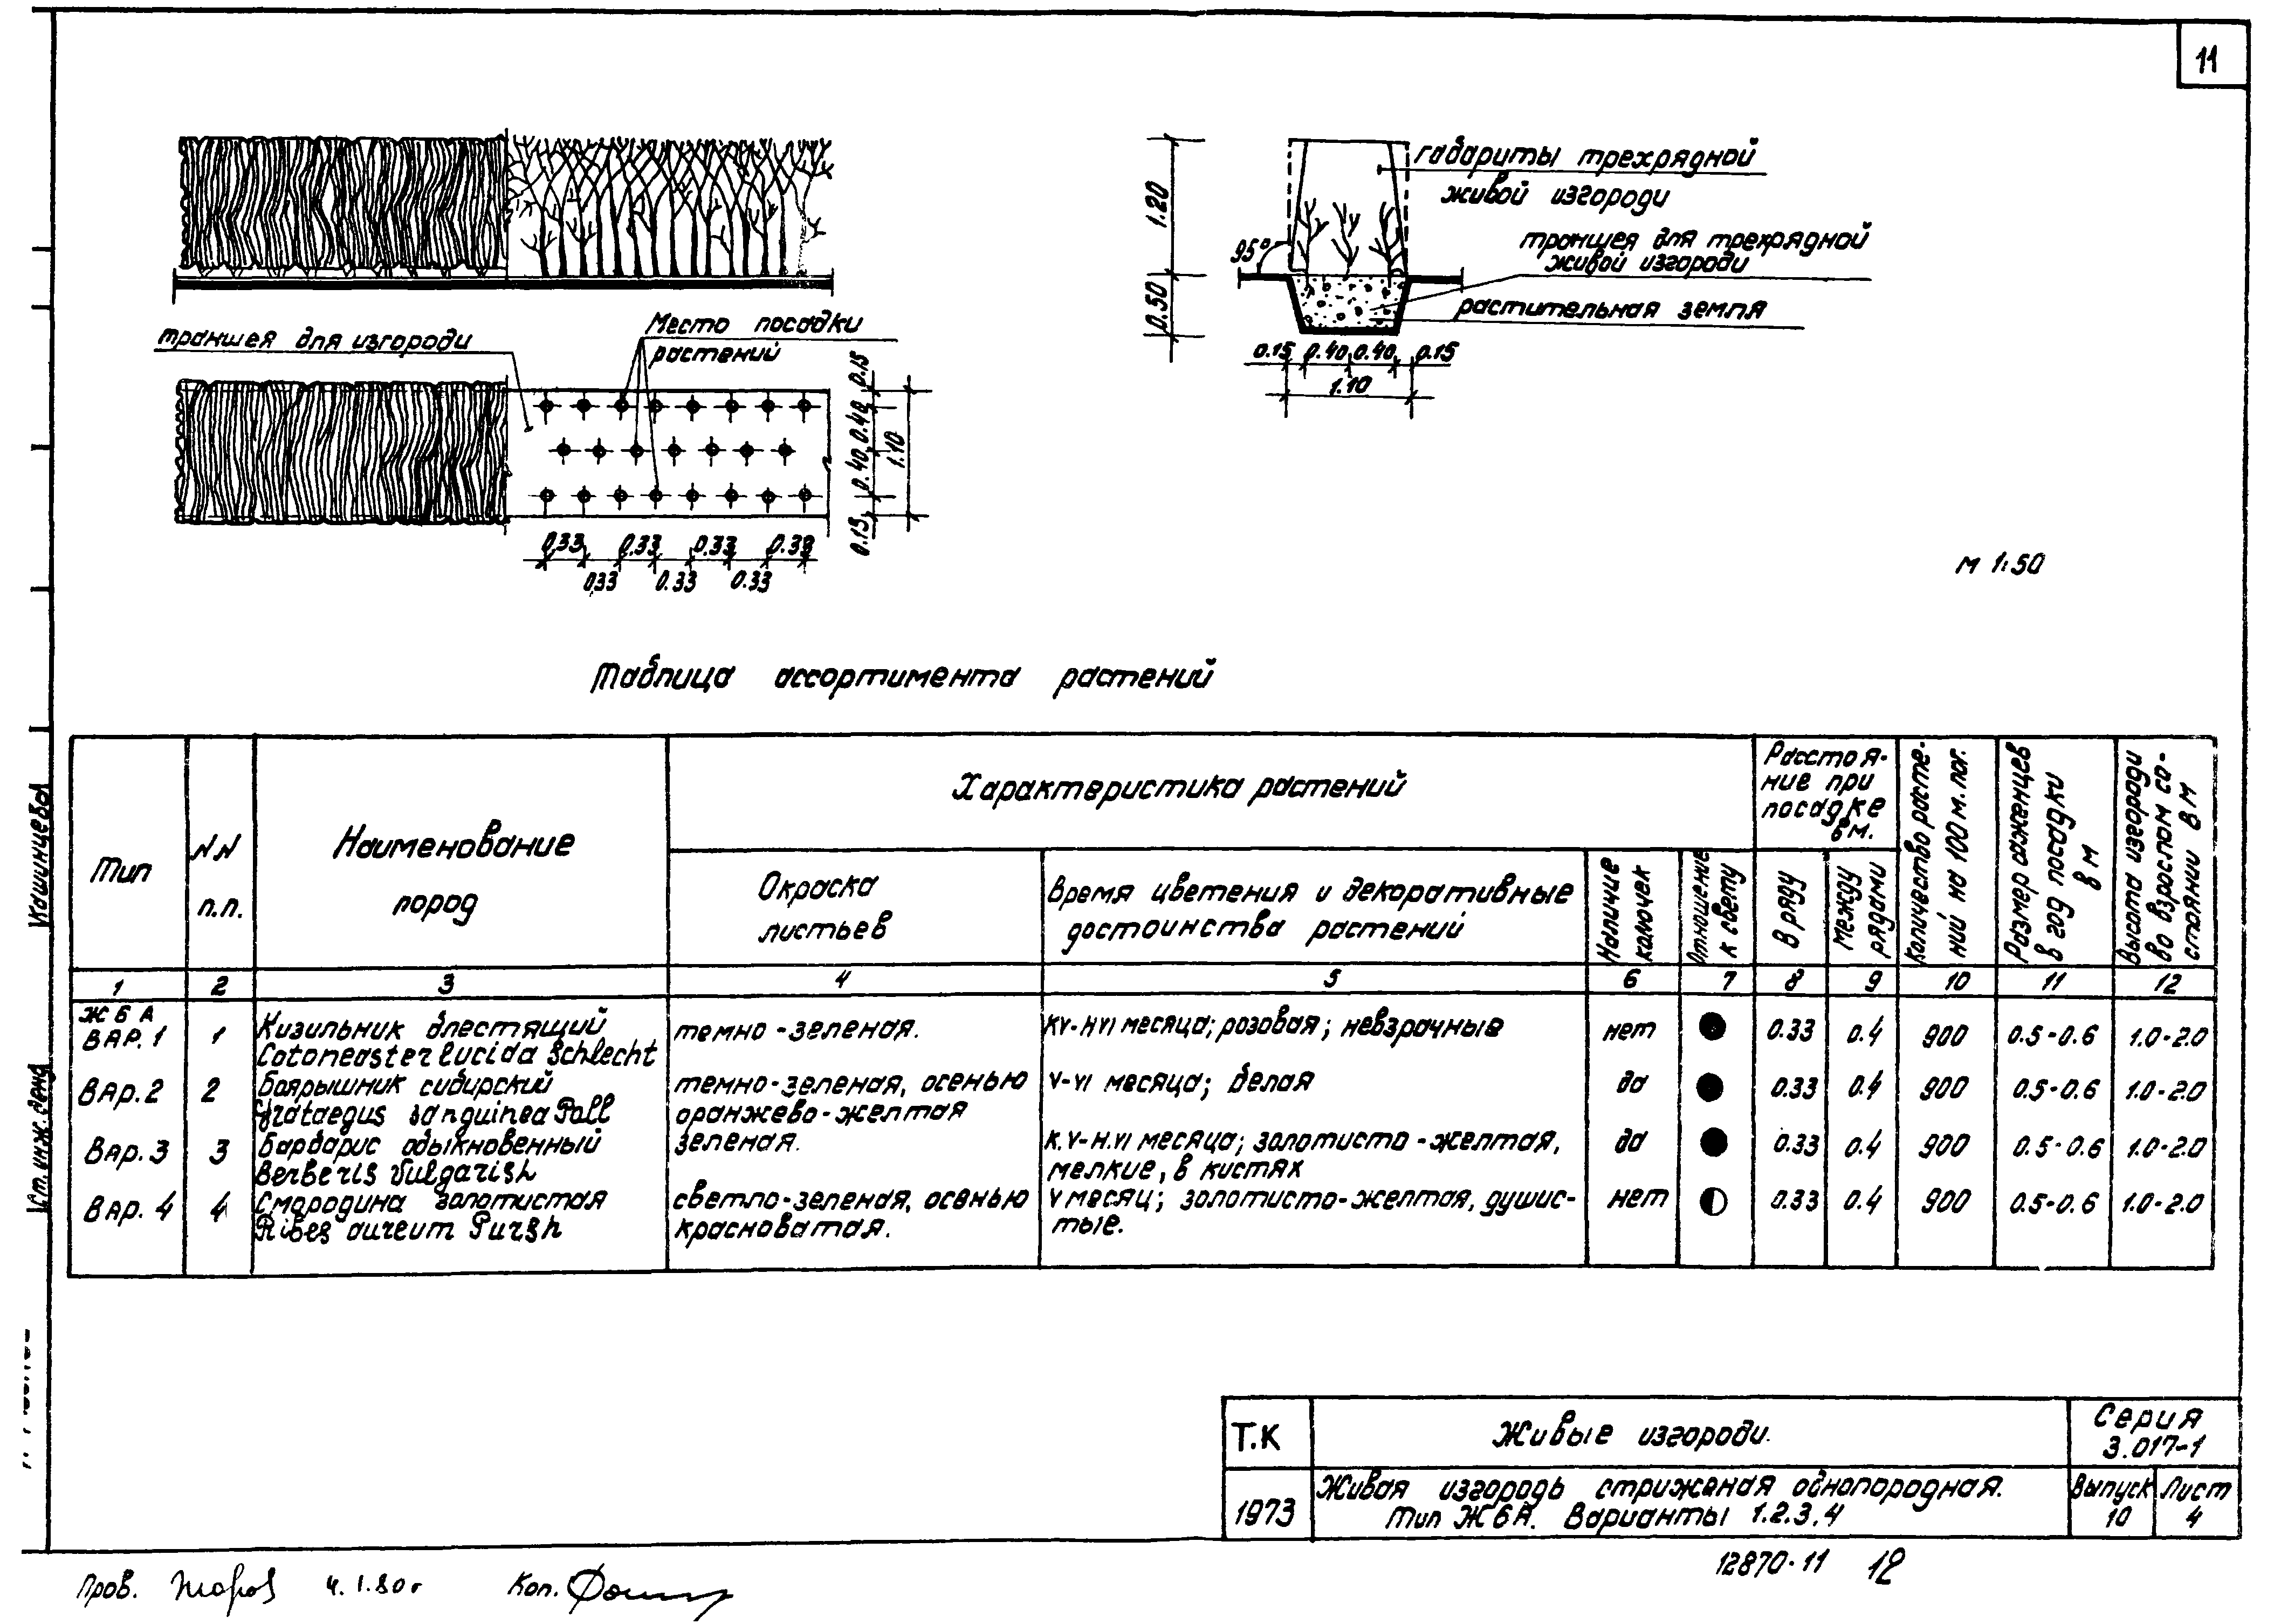 11
габариты трехрядной
живой изгороди
траншея для трехрядной
живой изгороди
растительная земля
1.20
0.50
95°
0.15 0.40 0.40 0.15
1.10
траншея для изгороди
Место посадки
растений
0.15
0.40
0.40
0.15
1.10
0.33 0.33 0.33 0.33
0.33 0.33 0.33
М 1:50
Таблица ассортимента растений
Тип
N.N
п.п.
Наименование
пород
Характеристика растений
Окраска
листьев
Время цветения и декоративные
достоинства растений
Наличие
колючек
Отношение
к свету
Расстоя-
ние при
посадке
в м.
В ряду
Между
рядами
Количество расте-
ний на 100 м. пог.
Размер саженцев
в год посадки
в м
Высота изгороди
во взрослом со-
стоянии в м
1 2 3 4 5 6 7 8 9 10 11 12
Ж 6 А
Вар. 1 1 Кизильник блестящий темно-зеленая. KV-HVI месяца; розовая; невзрачные нет 0.33 0.4 900 0.5-0.6 1.0-2.0
Cotoneaster lucida Schlecht
Вар. 2 2 Боярышник сибирский темно-зеленая, осенью V-VI месяца; белая да 0.33 0.4 900 0.5-0.6 1.0-2.0
Grataegus sanguinea Pall оранжево-желтая
Вар. 3 3 Барбарис обыкновенный зеленая. K.V-H.VI месяца; золотисто-желтая, да 0.33 0.4 900 0.5-0.6 1.0-2.0
Berberis Vulgarish мелкие, в кистях
Вар. 4 4 Смородина золотистая светло-зеленая, осенью V месяц; золотисто-желтая, душис- нет 0.33 0.4 900 0.5-0.6 1.0-2.0
Ribes aureum Pursh красноватая. тые.
Кашинцева
Ст. инж. денд
Т.К
Живые изгороди.
Серия
3.017-1
1973
Живая изгородь стриженая однопородная.
Тип Ж6А. Варианты 1.2.3.4
Выпуск
10
Лист
4
12870-11 12
Пров. 4.1.80г Коп.